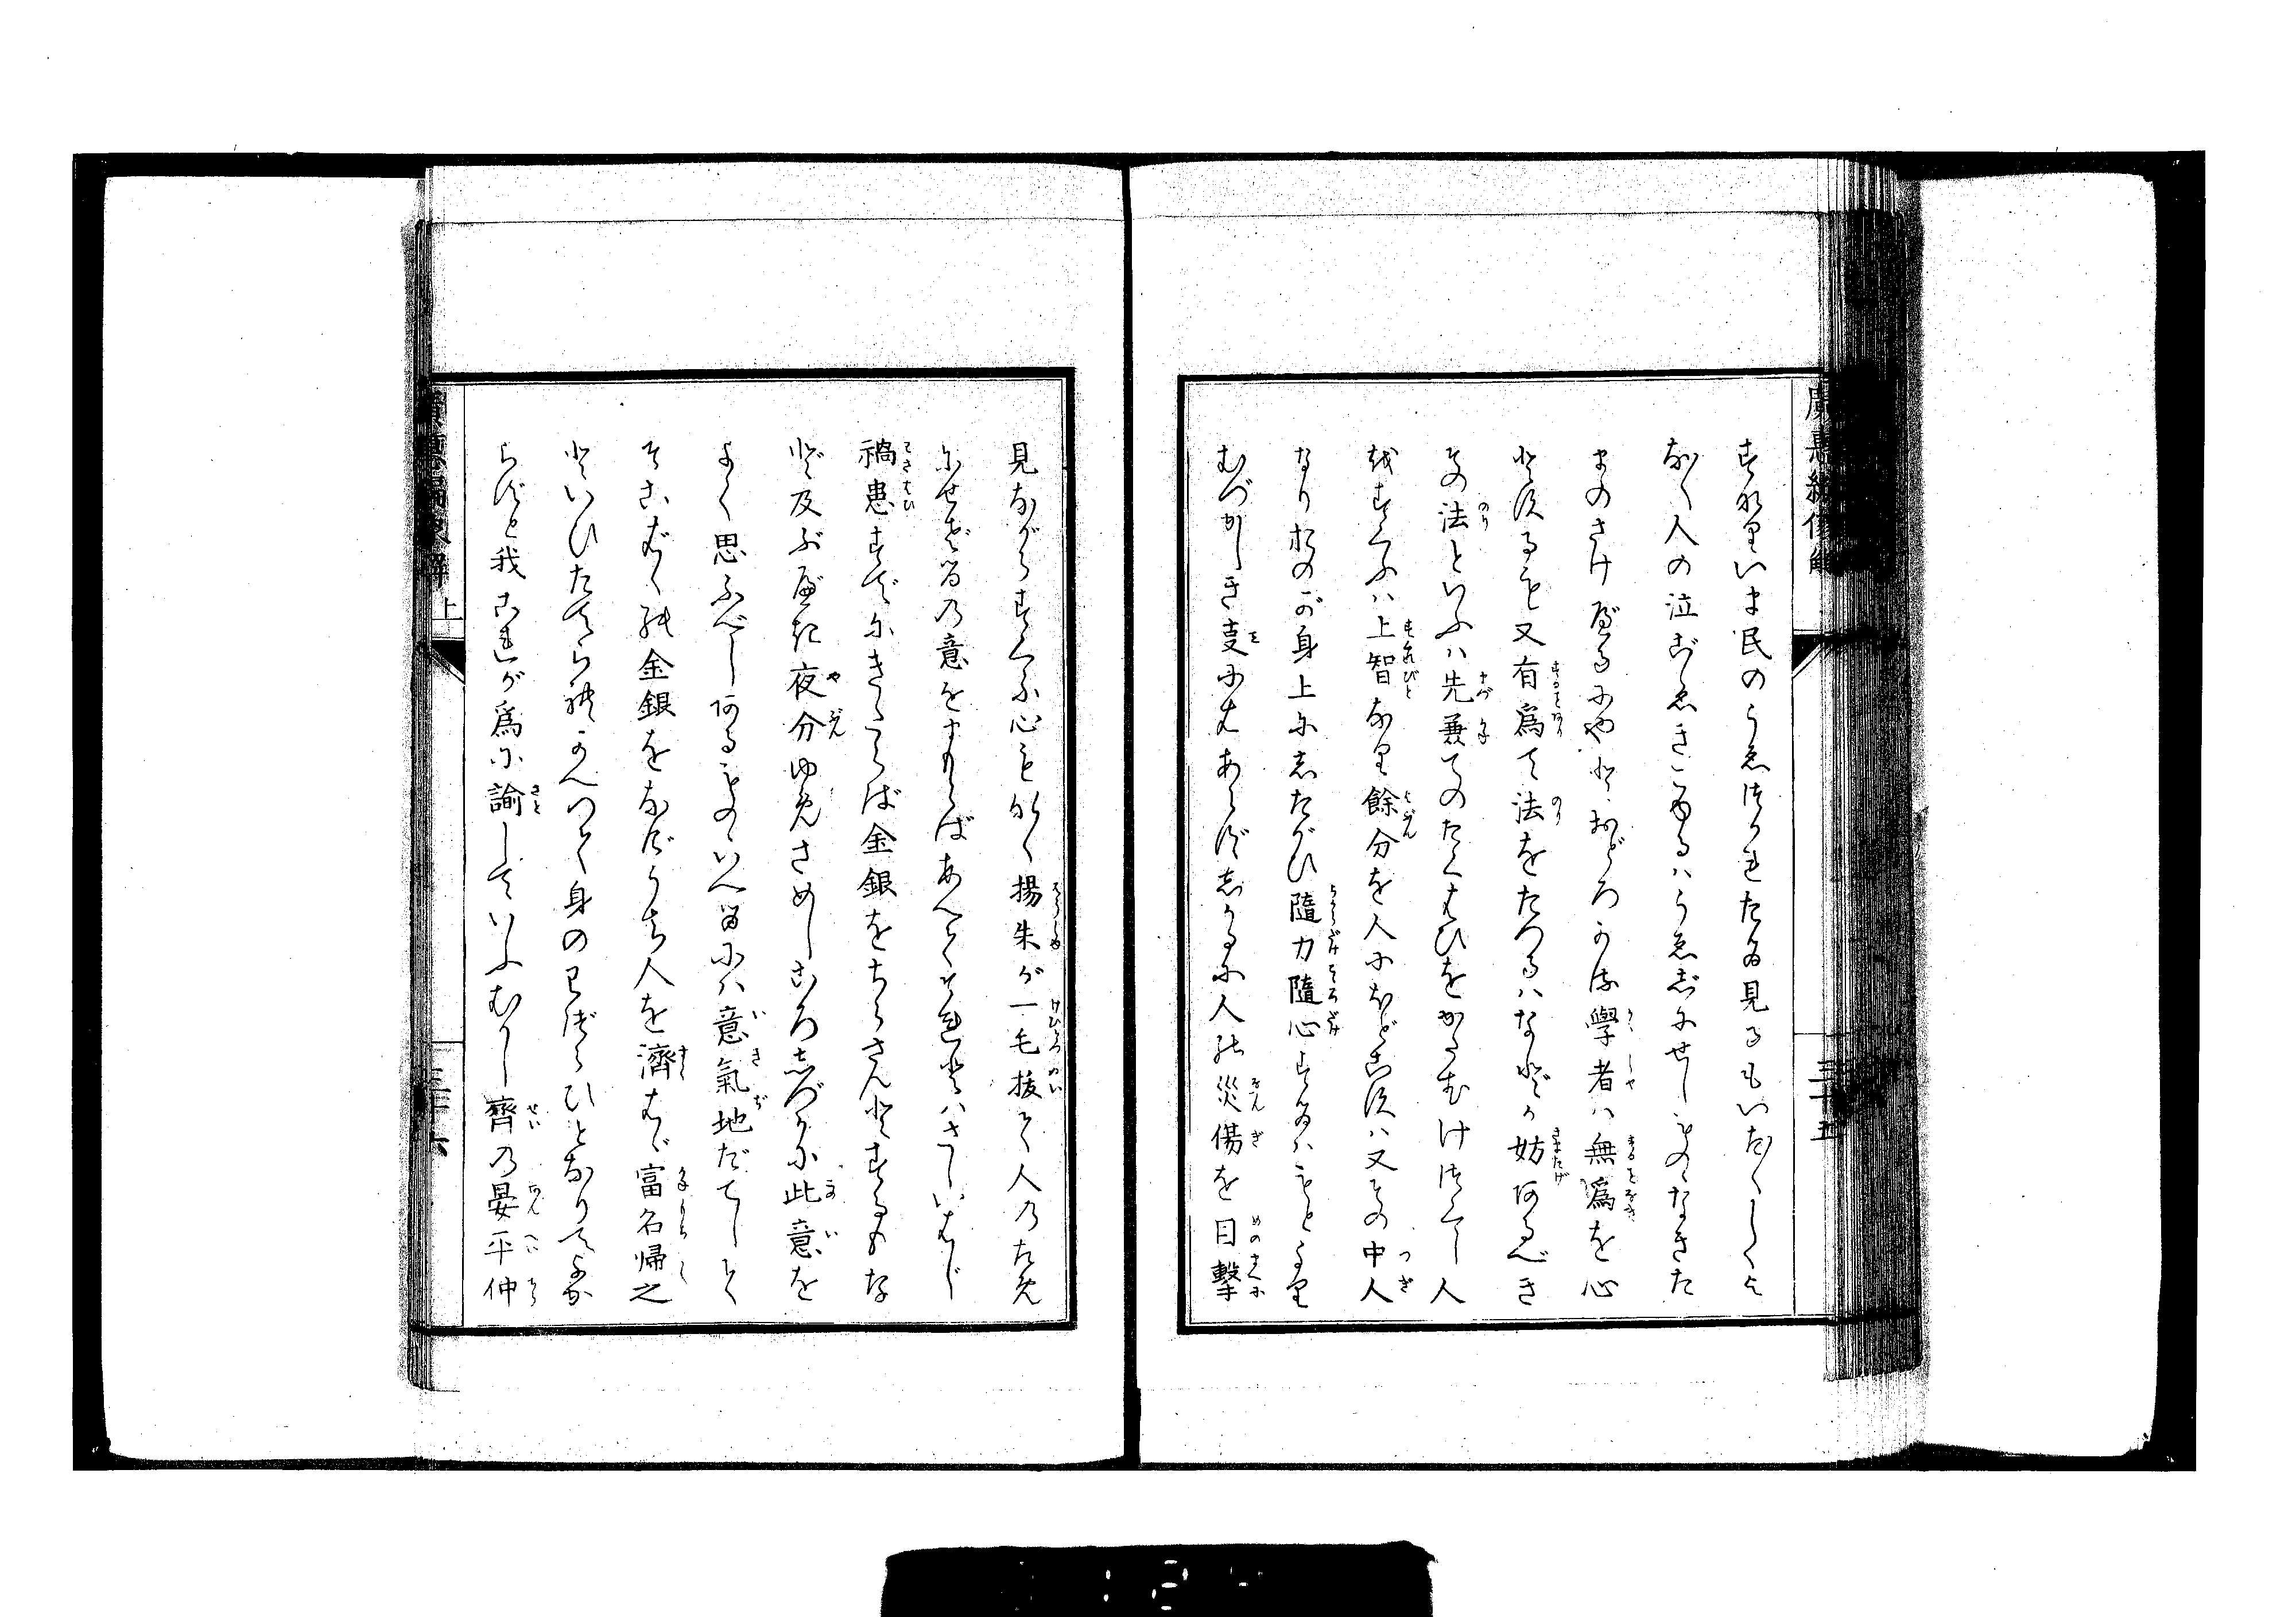 廣惠編俗解
すなりいま民のうゑつかれたるを見るもいたましくよ
なく人の泣ごゑきこゆるハうゑじにせしものゝなきた
まのさけびるにやとおどろかる學者ハ無爲を心
とするも又有爲て法をたつるハなどか妨あるべき
その法といふハ先兼てのたくはひをかたむけつくし人
をすくふハ上智なり餘分を人にほどこすハ又その中人
なりおのが身上にしたがひ隨力隨心するハもとより
むづかしき事にはあらずしかるに人の災傷を目擊
三十五
見ながらすくふ心もなく揚朱が一毛拔て人のため
にせざるの意をまもらばあへてそれとハさしいはじ
禍患すでにきたらば金銀をちらさんとするもな
ど及ぶべき夜分ゆめさめしころしづかに此意を
よく思ふべしあるものゝいへるにハ意氣地だてして
そこばくの金銀をなげうち人を濟はゞ富名帰之
といひたてられかへつて身のわづらひとなりてよか
らずと我これが爲に諭していふむかし齊の晏平仲
廣惠編俗解 上
三十六